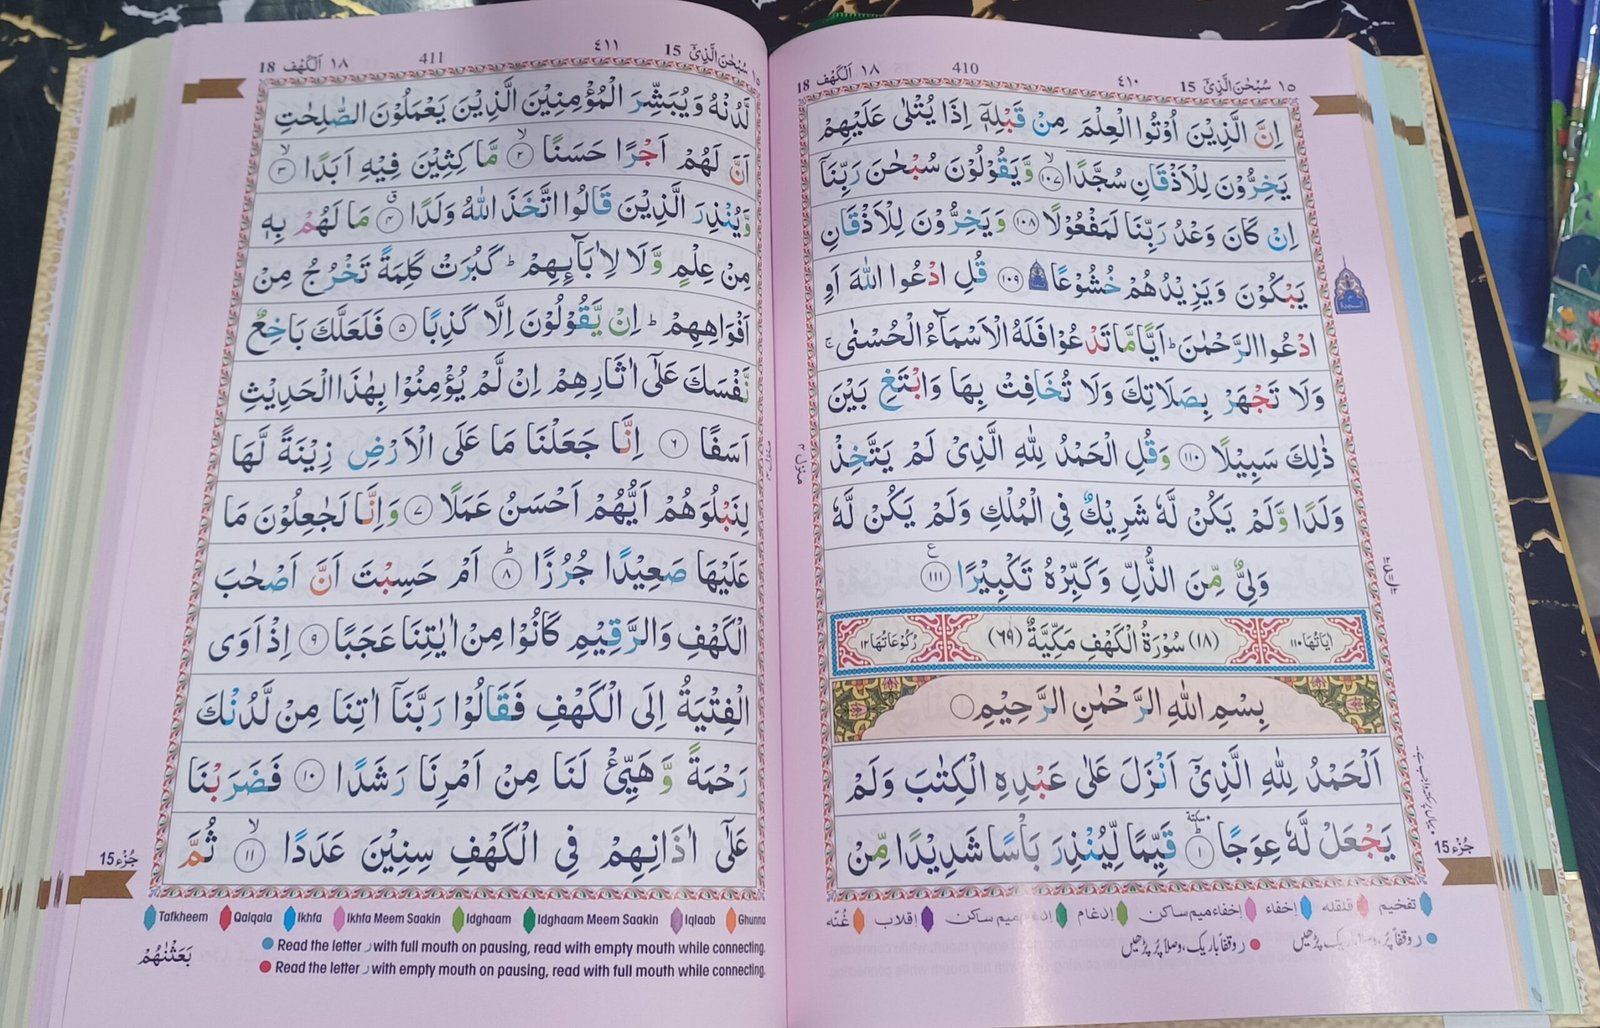 ١٥ سُبْحٰنَ الَّذِیْۤ 15
٤١٠
410
اَلْکَهْف ١٨ 18
اِنَّ الَّذِیْنَ اُوْتُوا الْعِلْمَ مِنْ قَبْلِهٖۤ اِذَا یُتْلٰی عَلَیْهِمْ
یَخِرُّوْنَ لِلْاَذْقَانِ سُجَّدًا ۙ ١٠٧ وَّ یَقُوْلُوْنَ سُبْحٰنَ رَبِّنَاۤ
اِنْ کَانَ وَعْدُ رَبِّنَا لَمَفْعُوْلًا ١٠٨ وَ یَخِرُّوْنَ لِلْاَذْقَانِ
یَبْکُوْنَ وَ یَزِیْدُهُمْ خُشُوْعًا ١٠٩ قُلِ ادْعُوا اللّٰهَ اَوِ
ادْعُوا الرَّحْمٰنَ ؕ اَیًّا مَّا تَدْعُوْا فَلَهُ الْاَسْمَآءُ الْحُسْنٰی ۚ
وَ لَا تَجْهَرْ بِصَلَاتِكَ وَ لَا تُخَافِتْ بِهَا وَ ابْتَغِ بَیْنَ
ذٰلِكَ سَبِیْلًا ١١٠ وَ قُلِ الْحَمْدُ لِلّٰهِ الَّذِیْ لَمْ یَتَّخِذْ
وَلَدًا وَّ لَمْ یَکُنْ لَّهٗ شَرِیْكٌ فِی الْمُلْكِ وَ لَمْ یَکُنْ لَّهٗ
وَلِیٌّ مِّنَ الذُّلِّ وَ کَبِّرْهُ تَکْبِیْرًا ١١١ ع
اٰیَاتُهَا ١١٠ (١٨) سُوْرَةُ الْکَهْفِ مَکِّیَّةٌ (٦٩) رُکُوْعَاتُهَا ١٢
بِسْمِ اللّٰهِ الرَّحْمٰنِ الرَّحِیْمِ
اَلْحَمْدُ لِلّٰهِ الَّذِیْۤ اَنْزَلَ عَلٰی عَبْدِهِ الْکِتٰبَ وَ لَمْ
یَجْعَلْ لَّهٗ عِوَجًا ؕ سكتة ١ قَیِّمًا لِّیُنْذِرَ بَاْسًا شَدِیْدًا مِّنْ
جُزْء 15
منزل ٤
تفخیم قلقله إخفاء إخفاء میم ساکن إدغام إدغام میم ساکن إقلاب غُنّه
ر وقفاً پُر، وصلاً باریک پڑھیں
ر وقفاً باریک، وصلاً پُر پڑھیں
١٥ سُبْحٰنَ الَّذِیْۤ 15
٤١١
411
اَلْکَهْف ١٨ 18
لَّدُنْهُ وَ یُبَشِّرَ الْمُؤْمِنِیْنَ الَّذِیْنَ یَعْمَلُوْنَ الصّٰلِحٰتِ
اَنَّ لَهُمْ اَجْرًا حَسَنًا ۙ ٢ مَّا کِثِیْنَ فِیْهِ اَبَدًا ۙ ٣
وَّ یُنْذِرَ الَّذِیْنَ قَالُوا اتَّخَذَ اللّٰهُ وَلَدًا ۗ ٤ مَا لَهُمْ بِهٖ
مِنْ عِلْمٍ وَّ لَا لِاٰبَآئِهِمْ ؕ کَبُرَتْ کَلِمَةً تَخْرُجُ مِنْ
اَفْوَاهِهِمْ ؕ اِنْ یَّقُوْلُوْنَ اِلَّا کَذِبًا ٥ فَلَعَلَّكَ بَاخِعٌ
نَّفْسَكَ عَلٰۤی اٰثَارِهِمْ اِنْ لَّمْ یُؤْمِنُوْا بِهٰذَا الْحَدِیْثِ
اَسَفًا ٦ اِنَّا جَعَلْنَا مَا عَلَی الْاَرْضِ زِیْنَةً لَّهَا
لِنَبْلُوَهُمْ اَیُّهُمْ اَحْسَنُ عَمَلًا ٧ وَ اِنَّا لَجٰعِلُوْنَ مَا
عَلَیْهَا صَعِیْدًا جُرُزًا ؕ ٨ اَمْ حَسِبْتَ اَنَّ اَصْحٰبَ
الْکَهْفِ وَ الرَّقِیْمِ کَانُوْا مِنْ اٰیٰتِنَا عَجَبًا ٩ اِذْ اَوَی
الْفِتْیَةُ اِلَی الْکَهْفِ فَقَالُوْا رَبَّنَاۤ اٰتِنَا مِنْ لَّدُنْكَ
رَحْمَةً وَّ هَیِّئْ لَنَا مِنْ اَمْرِنَا رَشَدًا ١٠ فَضَرَبْنَا
عَلٰۤی اٰذَانِهِمْ فِی الْکَهْفِ سِنِیْنَ عَدَدًا ۙ ١١ ثُمَّ
جُزْء 15
Tafkheem Qalqala Ikhfa Ikhfa Meem Saakin Idghaam Idghaam Meem Saakin Iqlaab Ghunna
Read the letter ر with full mouth on pausing, read with empty mouth while connecting.
Read the letter ر with empty mouth on pausing, read with full mouth while connecting.
بَعَثْنٰهُمْ